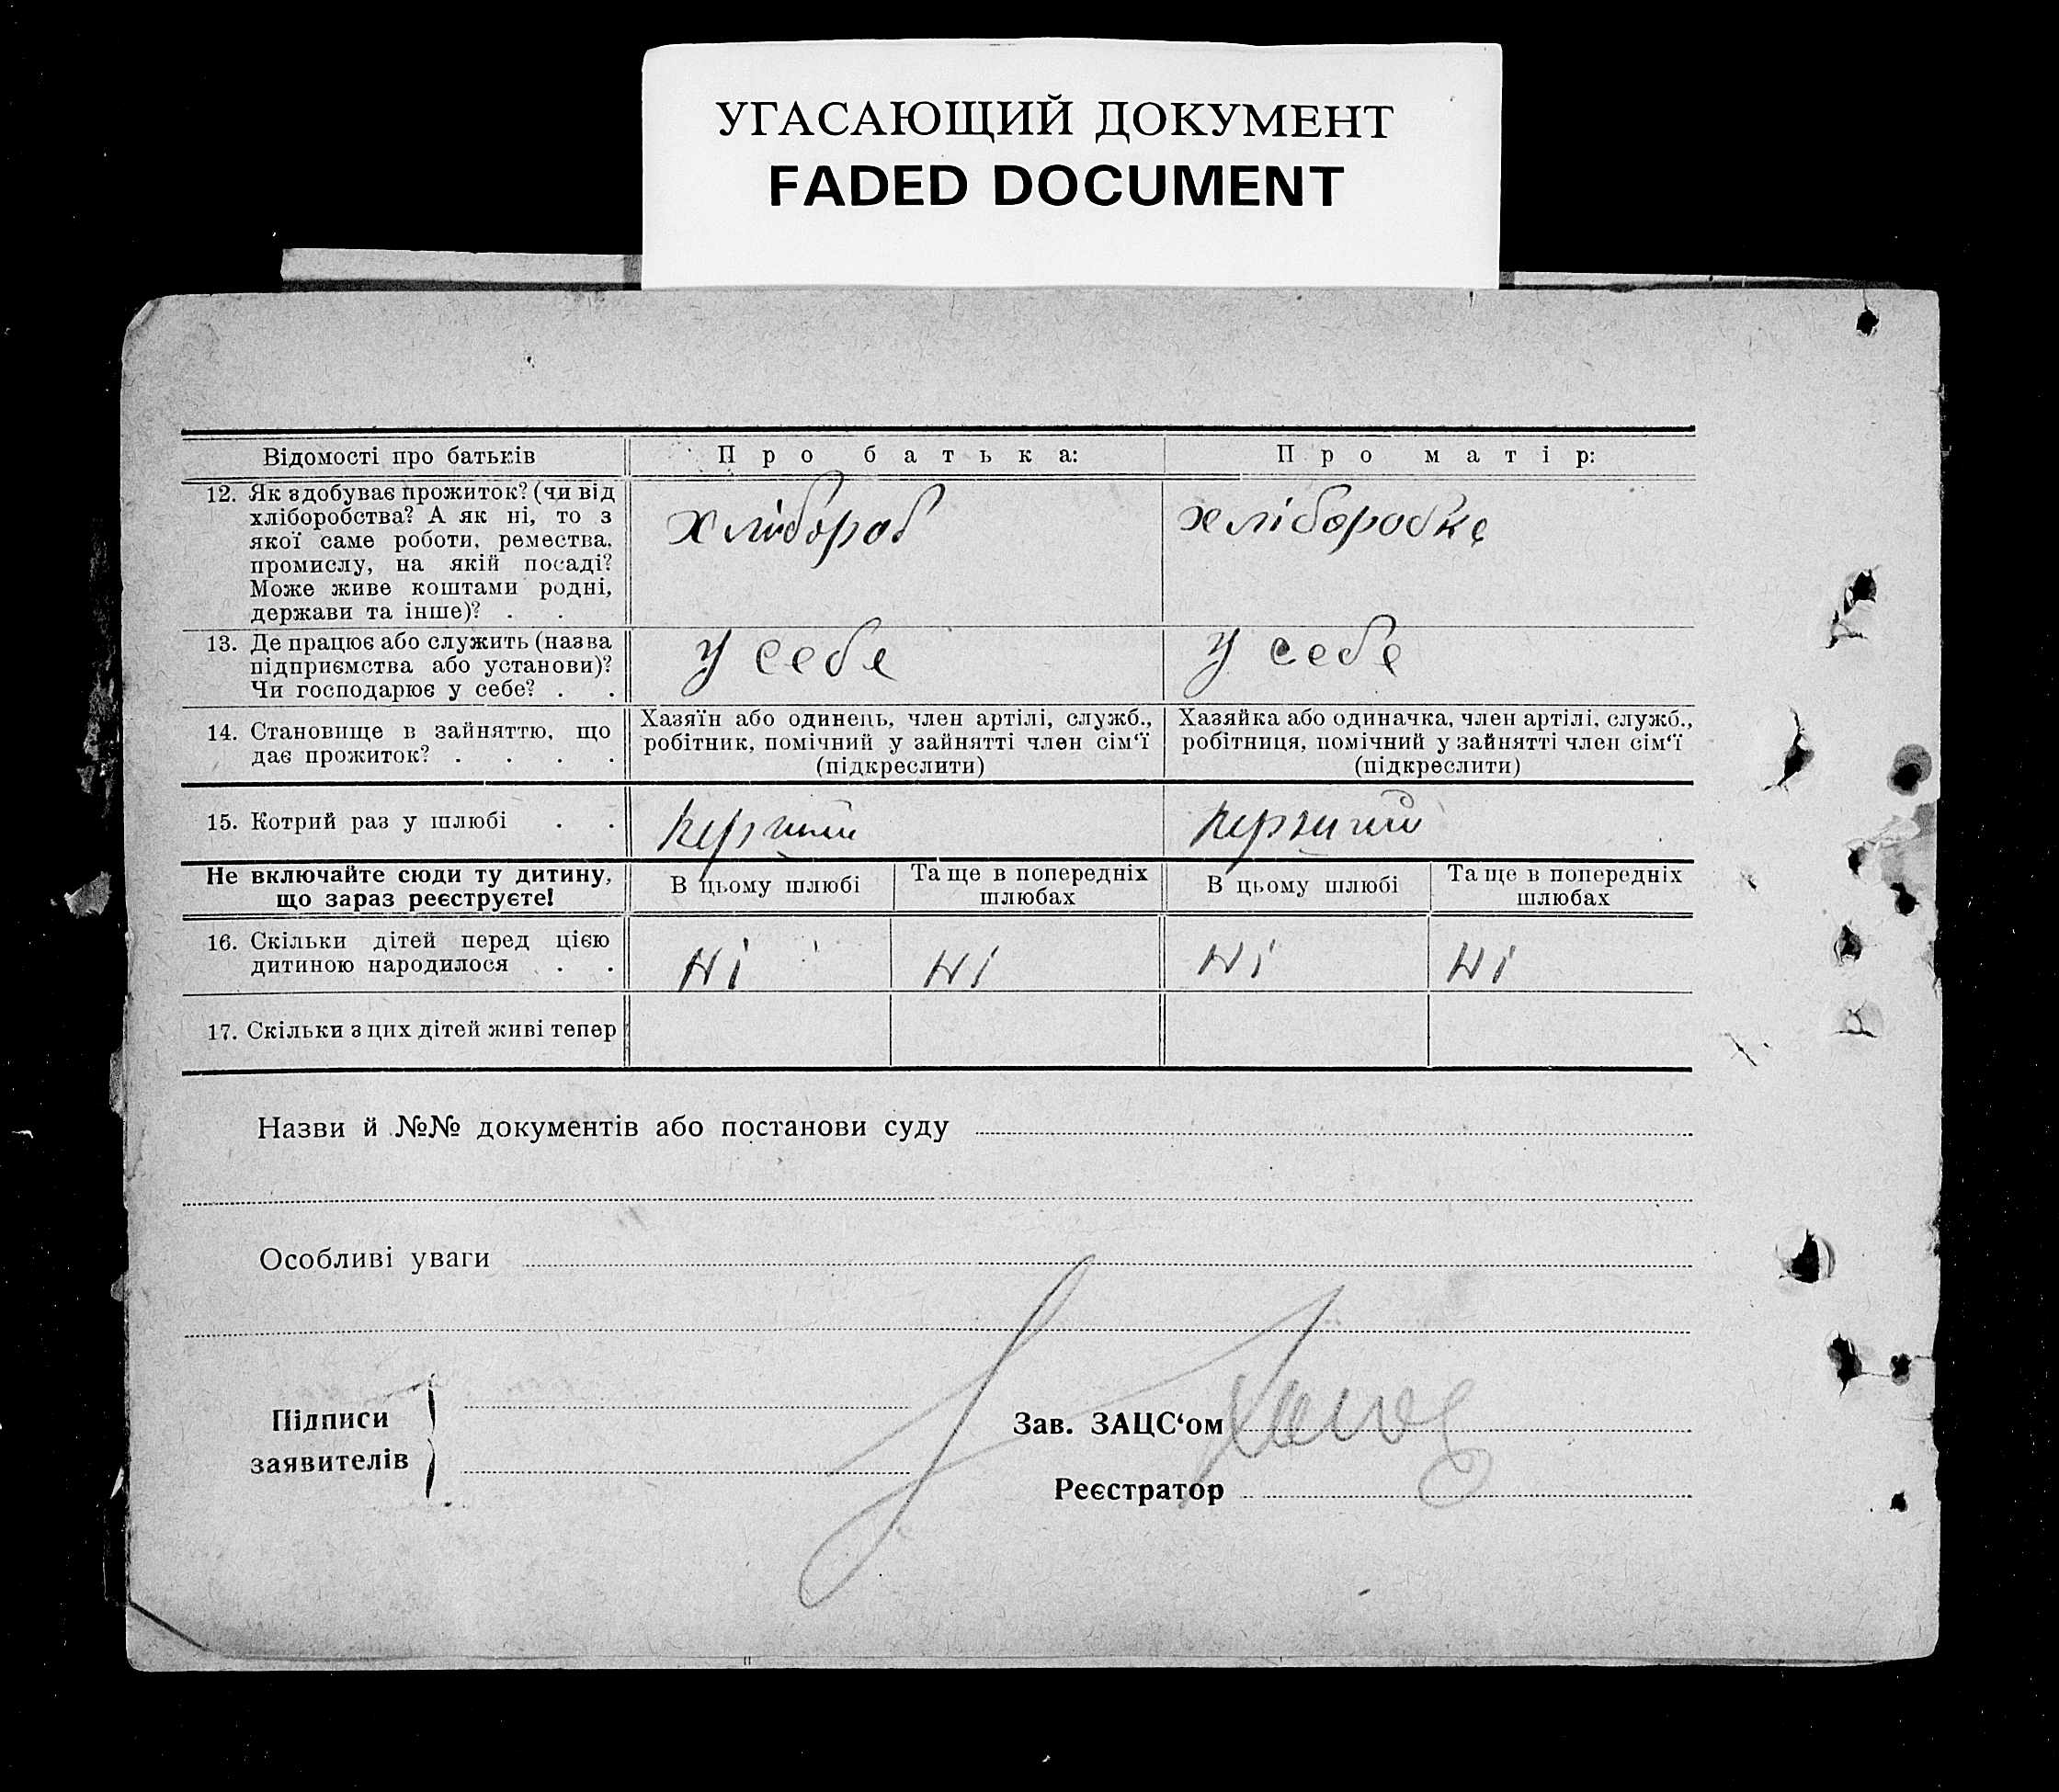 УГАСАЮЩИЙ ДОКУМЕНТ
FADED DOCUMENT
Відомості про батьків
Про батька:
Про матір:
12. Як здобуває прожиток? (чи від
хліборобства? А як ні, то з
якої саме роботи, ремества,
промислу, на якій посаді?
Може живе коштами родні,
держави та інше)? . .
хлібороб
хліборобка
13. Де працює або служить (назва
підприємства або установи)?
Чи господарює у себе? . .
у себе
у себе
14. Становище в зайняттю, що
дає прожиток? . . . .
Хазяїн або одинець, член артілі, служб.,
робітник, помічний у зайнятті член сім'ї
(підкреслити)
Хазяйка або одиначка, член артілі, служб.,
робітниця, помічний у зайнятті член сім'ї
(підкреслити)
15. Котрий раз у шлюбі . .
перший
перший
Не включайте сюди ту дитину,
що зараз реєструєте!
В цьому шлюбі
Та ще в попередніх
шлюбах
В цьому шлюбі
Та ще в попередніх
шлюбах
16. Скільки дітей перед цією
дитиною народилося . .
ні
ні
ні
ні
17. Скільки з цих дітей живі тепер
Назви й №№ документів або постанови суду
Особливі уваги
Підписи
заявителів
Зав. ЗАЦС'ом
Реєстратор